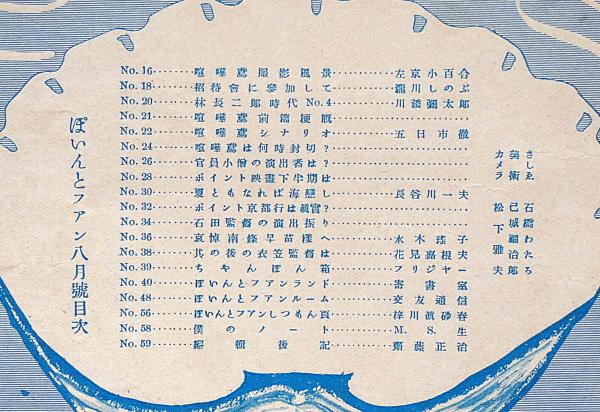 No.16……喧嘩鳶撮影風景………左京小百合
No.18……招待會に參加して………瀧川しのぶ
No.20……林長二郎時代 No.4………川添彌太郎
No.21……喧嘩鳶前篇梗槪………
No.22……喧嘩鳶シナリオ………五日市徹
No.24……喧嘩鳶は何時封切?
No.26……官員小僧の演出者は?
No.28……ポイント映畫下半期は
No.30……夏ともなれば海戀し………長谷川一夫
No.32……ポイント京都行は眞實?
No.34……石田監督の演出振り
No.36……哀悼南條早苗樣へ………水木瑤子
No.38……其の後の衣笠監督は………花見嘉根夫
No.39……ちやんぽん箱………フリジヤー
No.40……ぽいんとフアンランド………寄書室
No.48……ぽいんとフアンルーム………交友通信
No.56……ぽいんとフアンしつもん頁………梓川眞砂春
No.58……僕のノート………M.S.生
No.59……編輯後記………齋藤正治
さしゑ 石橋わたる
美術 已城福治郎
カメラ 松下雅夫
ぽいんとフアン八月號目次